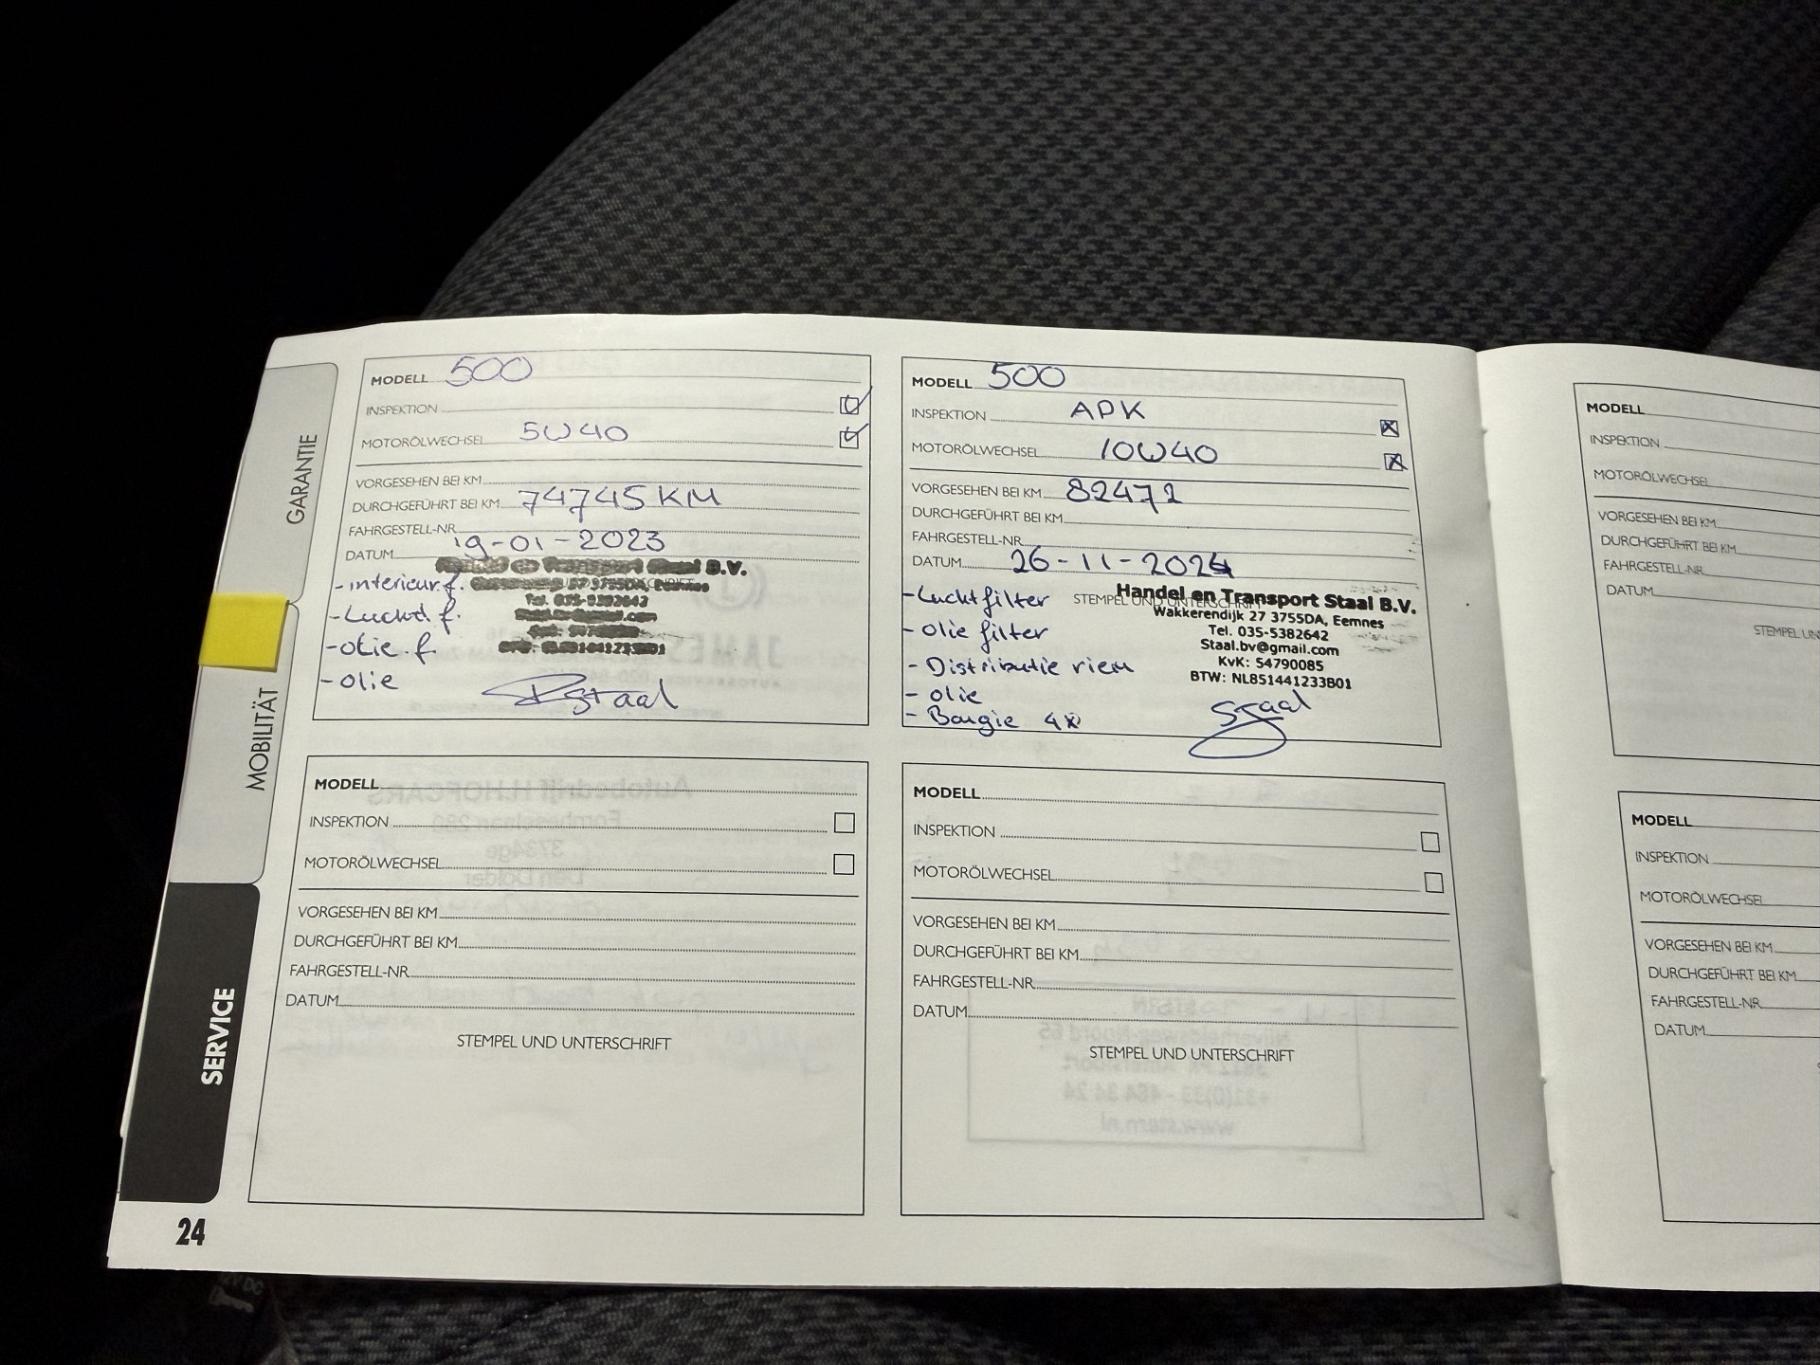 GARANTIE
MOBILITÄT
SERVICE
24
MODELL 500
INSPEKTION
MOTORÖLWECHSEL 5W40
VORGESEHEN BEI KM
DURCHGEFÜHRT BEI KM 74745 KM
FAHRGESTELL-NR
DATUM 19-01-2023
Tel. 035-5382642
- interieur f.
- Lucht f.
- olie f.
- olie
Staal
MODELL 500
INSPEKTION APK
MOTORÖLWECHSEL 10W40
VORGESEHEN BEI KM 82471
DURCHGEFÜHRT BEI KM
FAHRGESTELL-NR
DATUM 26-11-2024
STEMPEL UND UNTERSCHRIFT
Handel en Transport Staal B.V.
Wakkerendijk 27 3755DA, Eemnes
Tel. 035-5382642
Staal.bv@gmail.com
KvK: 54790085
BTW: NL851441233B01
- Luchtfilter
- olie filter
- Distributie riem
- olie
- Bougie 4x
Staal
MODELL
INSPEKTION
MOTORÖLWECHSEL
VORGESEHEN BEI KM
DURCHGEFÜHRT BEI KM
FAHRGESTELL-NR
DATUM
STEMPEL UND UNTERSCHRIFT
MODELL
INSPEKTION
MOTORÖLWECHSEL
VORGESEHEN BEI KM
DURCHGEFÜHRT BEI KM
FAHRGESTELL-NR
DATUM
STEMPEL UND UNTERSCHRIFT
MODELL
INSPEKTION
MOTORÖLWECHSEL
VORGESEHEN BEI KM
DURCHGEFÜHRT BEI KM
FAHRGESTELL-NR
DATUM
STEMPEL
MODELL
INSPEKTION
MOTORÖLWECHSEL
VORGESEHEN BEI KM
DURCHGEFÜHRT BEI KM
FAHRGESTELL-NR
DATUM